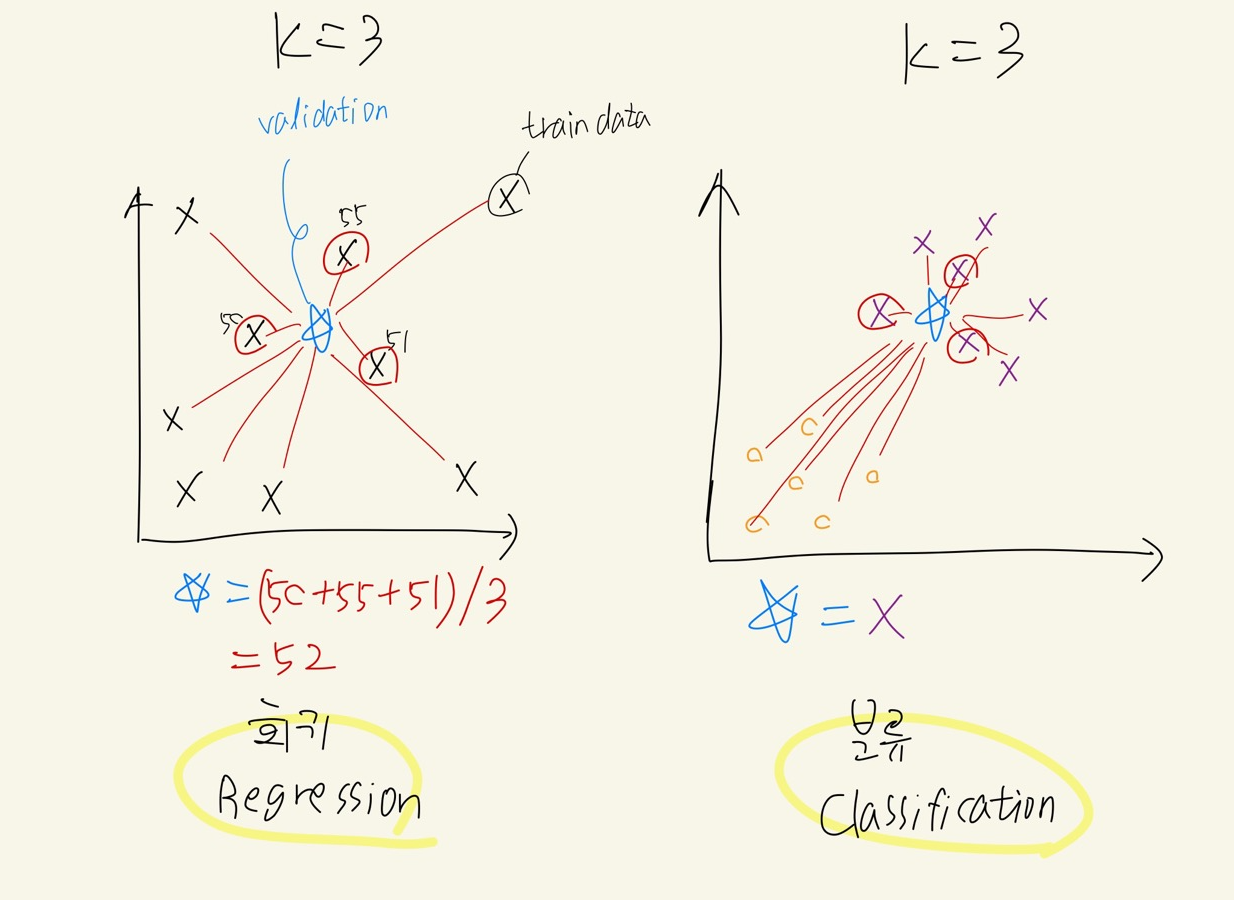 k=3
validation
train data
55
50
51
☆=(50+55+51)/3
=52
회귀
Regression
k=3
☆=X
분류
Classification